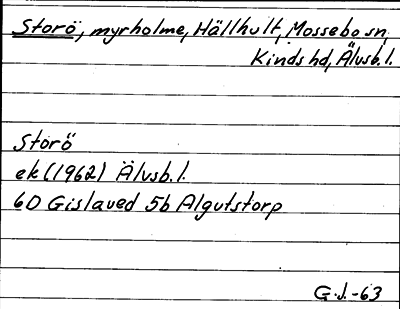 Storö, myrholme, Hällhult, Mossebo sn,
Kinds hd, Älvsb. l.
Storö
ek (1962) Älvsb. l.
6D Gislaved 5b Algutstorp
G.J.-63